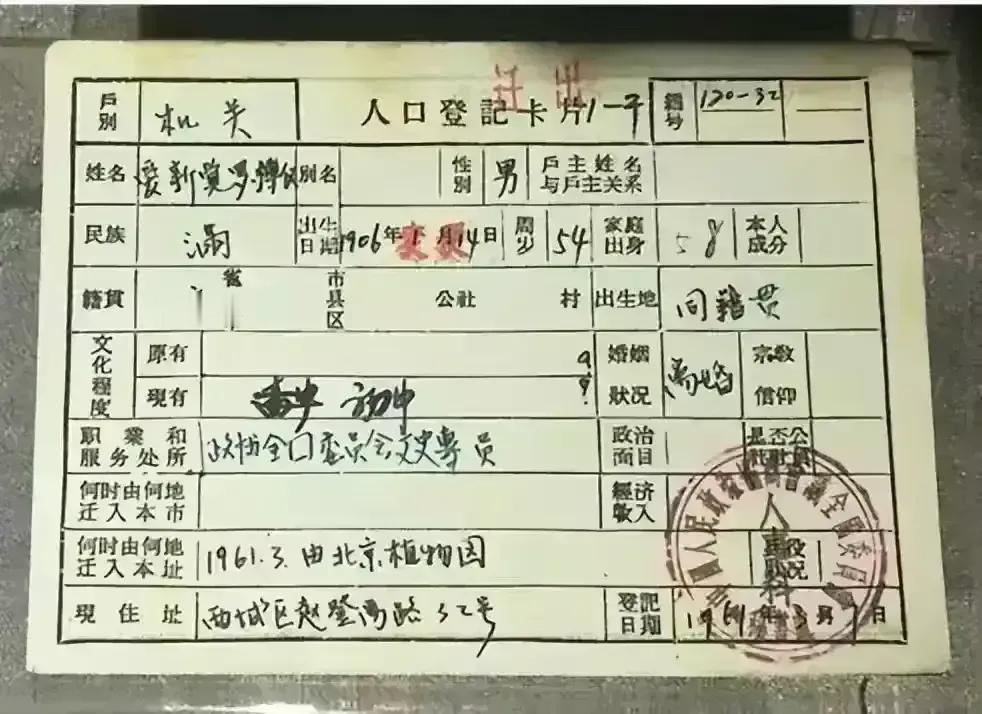 迁出
戶別 机关 人口登記卡片 1-干 編号 120-32
姓名 爱新觉罗·溥仪 別名 性別 男 戶主姓名与戶主关系
民族 满 出生日期 1906年 月14日 周岁 54 家庭出身 本人成分
籍貫 省 市县区 公社 村 出生地 同籍贯
文化程度 原有 婚姻狀况 离婚 宗教信仰
現有 初中
职業和服务处所 政协全口委员会文史專员 政治面目 是否公社社員
何时由何地迁入本市 經济收入
何时由何地迁入本址 1961.3.由北京植物园 兵役狀况
現住址 西城区赵登禹路32号 登記日期 1961年3月 日
人事科